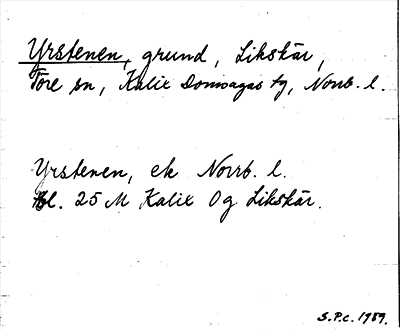 Yrstenen, grund, Likskär,
Töre sn, Kalix Domsagas tg, Norrb. l.
Yrstenen, ek Norrb. l.
Bl. 25 M Kalix Og Likskär.
S.P.C. 1989.